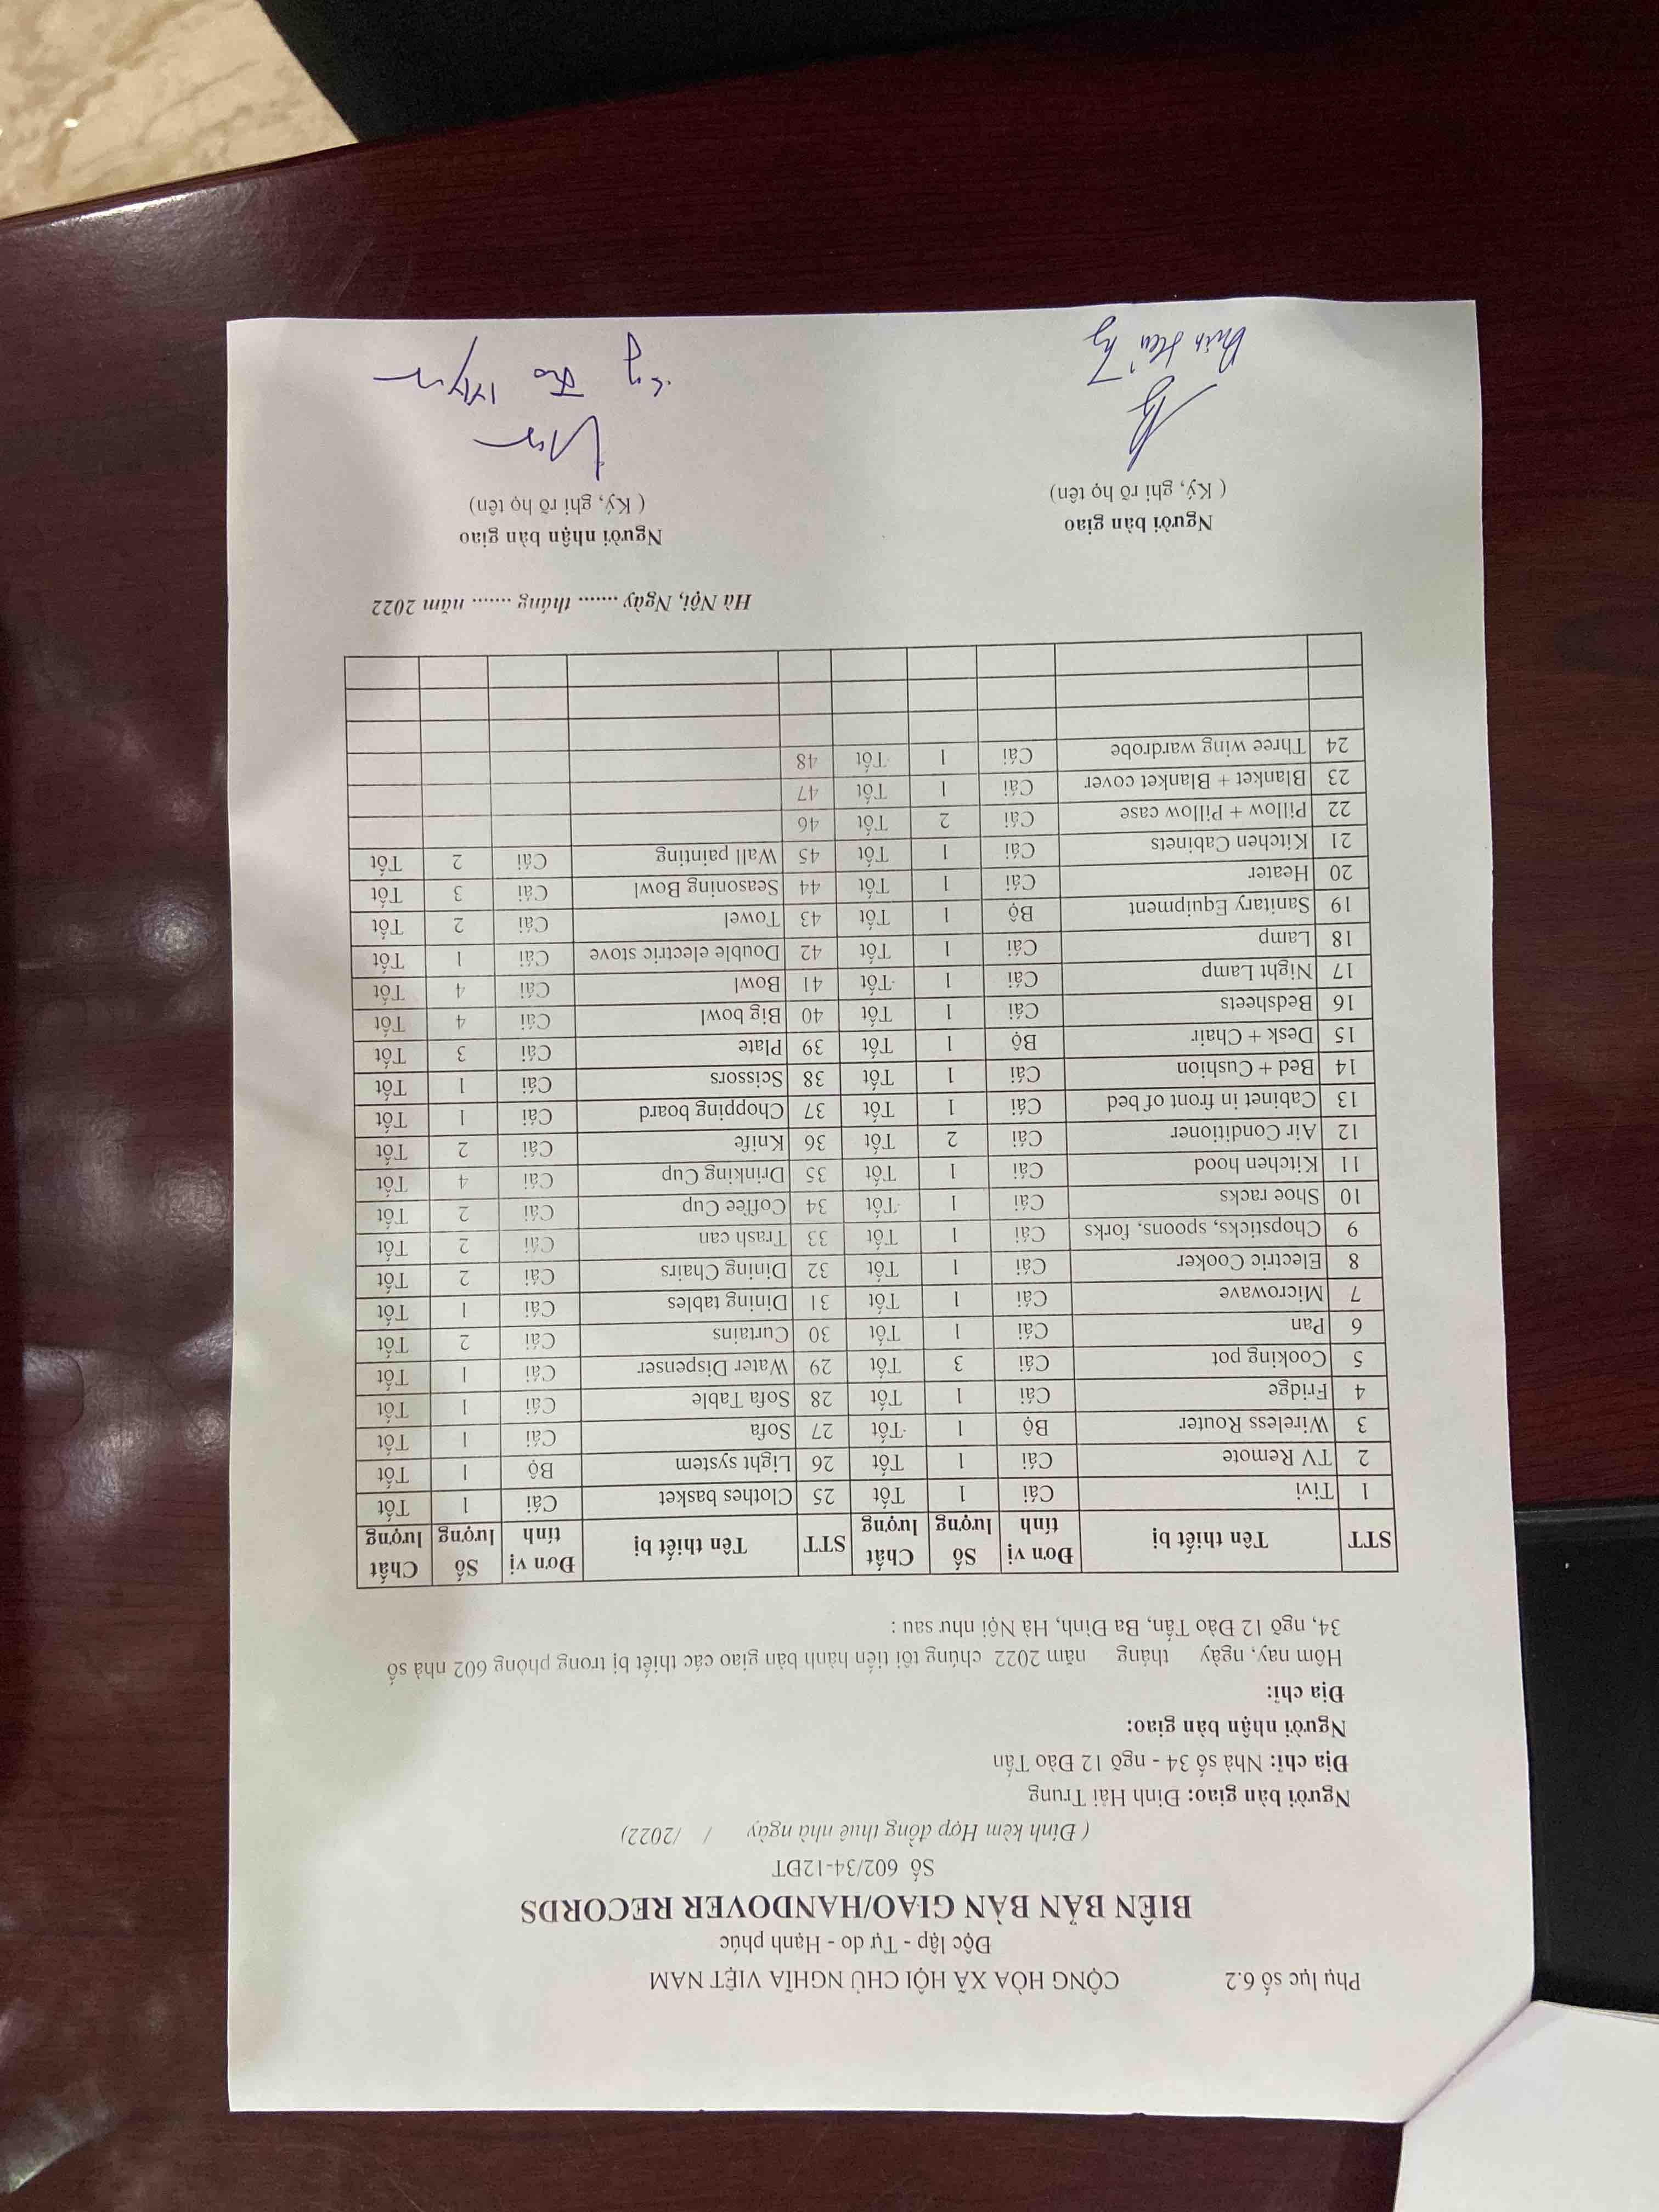 Phụ lục số 6.2 CỘNG HÒA XÃ HỘI CHỦ NGHĨA VIỆT NAM
Độc lập - Tự do - Hạnh phúc
BIÊN BẢN BÀN GIAO/HANDOVER RECORDS
Số 602/34-12ĐT
( Đính kèm Hợp đồng thuê nhà ngày / /2022)
Người bàn giao: Đinh Hải Trung
Địa chỉ: Nhà số 34 - ngõ 12 Đào Tấn
Người nhận bàn giao:
Địa chỉ:
Hôm nay, ngày tháng năm 2022 chúng tôi tiến hành bàn giao các thiết bị trong phòng 602 nhà số
34, ngõ 12 Đào Tấn, Ba Đình, Hà Nội như sau :
STT Tên thiết bị Đơn vị tính Số lượng Chất lượng STT Tên thiết bị Đơn vị tính Số lượng Chất lượng
1 Tivi Cái 1 Tốt 25 Clothes basket Cái 1 Tốt
2 TV Remote Cái 1 Tốt 26 Light system Bộ 1 Tốt
3 Wireless Router Bộ 1 Tốt 27 Sofa Cái 1 Tốt
4 Fridge Cái 1 Tốt 28 Sofa Table Cái 1 Tốt
5 Cooking pot Cái 3 Tốt 29 Water Dispenser Cái 1 Tốt
6 Pan Cái 1 Tốt 30 Curtains Cái 2 Tốt
7 Microwave Cái 1 Tốt 31 Dining tables Cái 1 Tốt
8 Electric Cooker Cái 1 Tốt 32 Dining Chairs Cái 2 Tốt
9 Chopsticks, spoons, forks Cái 1 Tốt 33 Trash can Cái 2 Tốt
10 Shoe racks Cái 1 Tốt 34 Coffee Cup Cái 2 Tốt
11 Kitchen hood Cái 1 Tốt 35 Drinking Cup Cái 4 Tốt
12 Air Conditioner Cái 2 Tốt 36 Knife Cái 2 Tốt
13 Cabinet in front of bed Cái 1 Tốt 37 Chopping board Cái 1 Tốt
14 Bed + Cushion Cái 1 Tốt 38 Scissors Cái 1 Tốt
15 Desk + Chair Bộ 1 Tốt 39 Plate Cái 3 Tốt
16 Bedsheets Cái 1 Tốt 40 Big bowl Cái 4 Tốt
17 Night Lamp Cái 1 Tốt 41 Bowl Cái 4 Tốt
18 Lamp Cái 1 Tốt 42 Double electric stove Cái 1 Tốt
19 Sanitary Equipment Bộ 1 Tốt 43 Towel Cái 2 Tốt
20 Heater Cái 1 Tốt 44 Seasoning Bowl Cái 3 Tốt
21 Kitchen Cabinets Cái 1 Tốt 45 Wall painting Cái 2 Tốt
22 Pillow + Pillow case Cái 2 Tốt 46
23 Blanket + Blanket cover Cái 1 Tốt 47
24 Three wing wardrobe Cái 1 Tốt 48
Hà Nội, Ngày ....... tháng ....... năm 2022
Người bàn giao Người nhận bàn giao
( Ký, ghi rõ họ tên) ( Ký, ghi rõ họ tên)